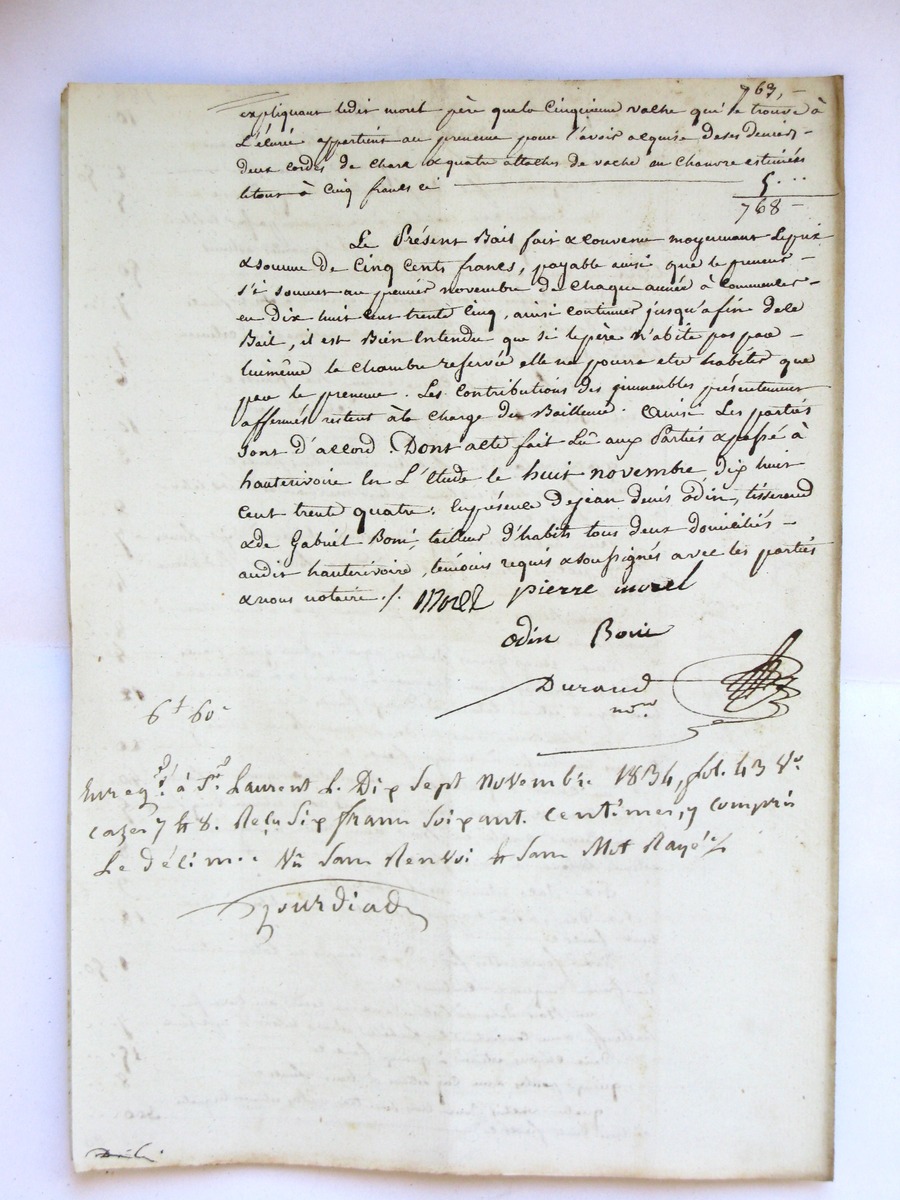 763,-
expliquant ledit morel père que la Cinquieme vache qui se trouve à
L'écurie appartient au preneur pour l'avoir acquise de ses deniers -
deux cordes de chars & quatre attaches de vache en Chanvre estimées
le tout à Cinq francs ci
5...
768 -
Le Présent Bail fait & convenu moyennant le prix
& somme de Cinq Cents francs, payable ainsi que le preneur -
s'i soumet au premier novembre de chaque année à Commencer -
en dix huit Cent trente Cinq, ainsi continuer jusqu'a fin de ce
Bail, il est Bien Entendu que si le père n'abite pas par -
luimême la chambre reservée elle ne pourra etre habitée que
par le preneur. Les Contributions des immeubles présentement
affermés restent à la charge du Bailleur. Ainsi Les parties
sont d'accord. Dont acte fait Lû aux Parties & passé à
hauterivoire en L'Etude le huit novembre dix huit
Cent trente quatre; En présence de jean denis Odin, tisserand
& de Gabriel Boni, tailleur d'habits tous deux domiciliés -
audit hauterivoire, temoins requis & soussignés avec les parties
& nous notaire ./. Morel pierre morel
Odin Boni
Durand
nore
6f 60c
Enregt à St Laurent L. Dix Sept novembre 1834, fol. 43 Vo
cases 7 et 8. Reçu Six francs Soixante Centimes, y compris
Le décime. Vu Sans Renvoi et Sans Mot Rayé
Gourdiad